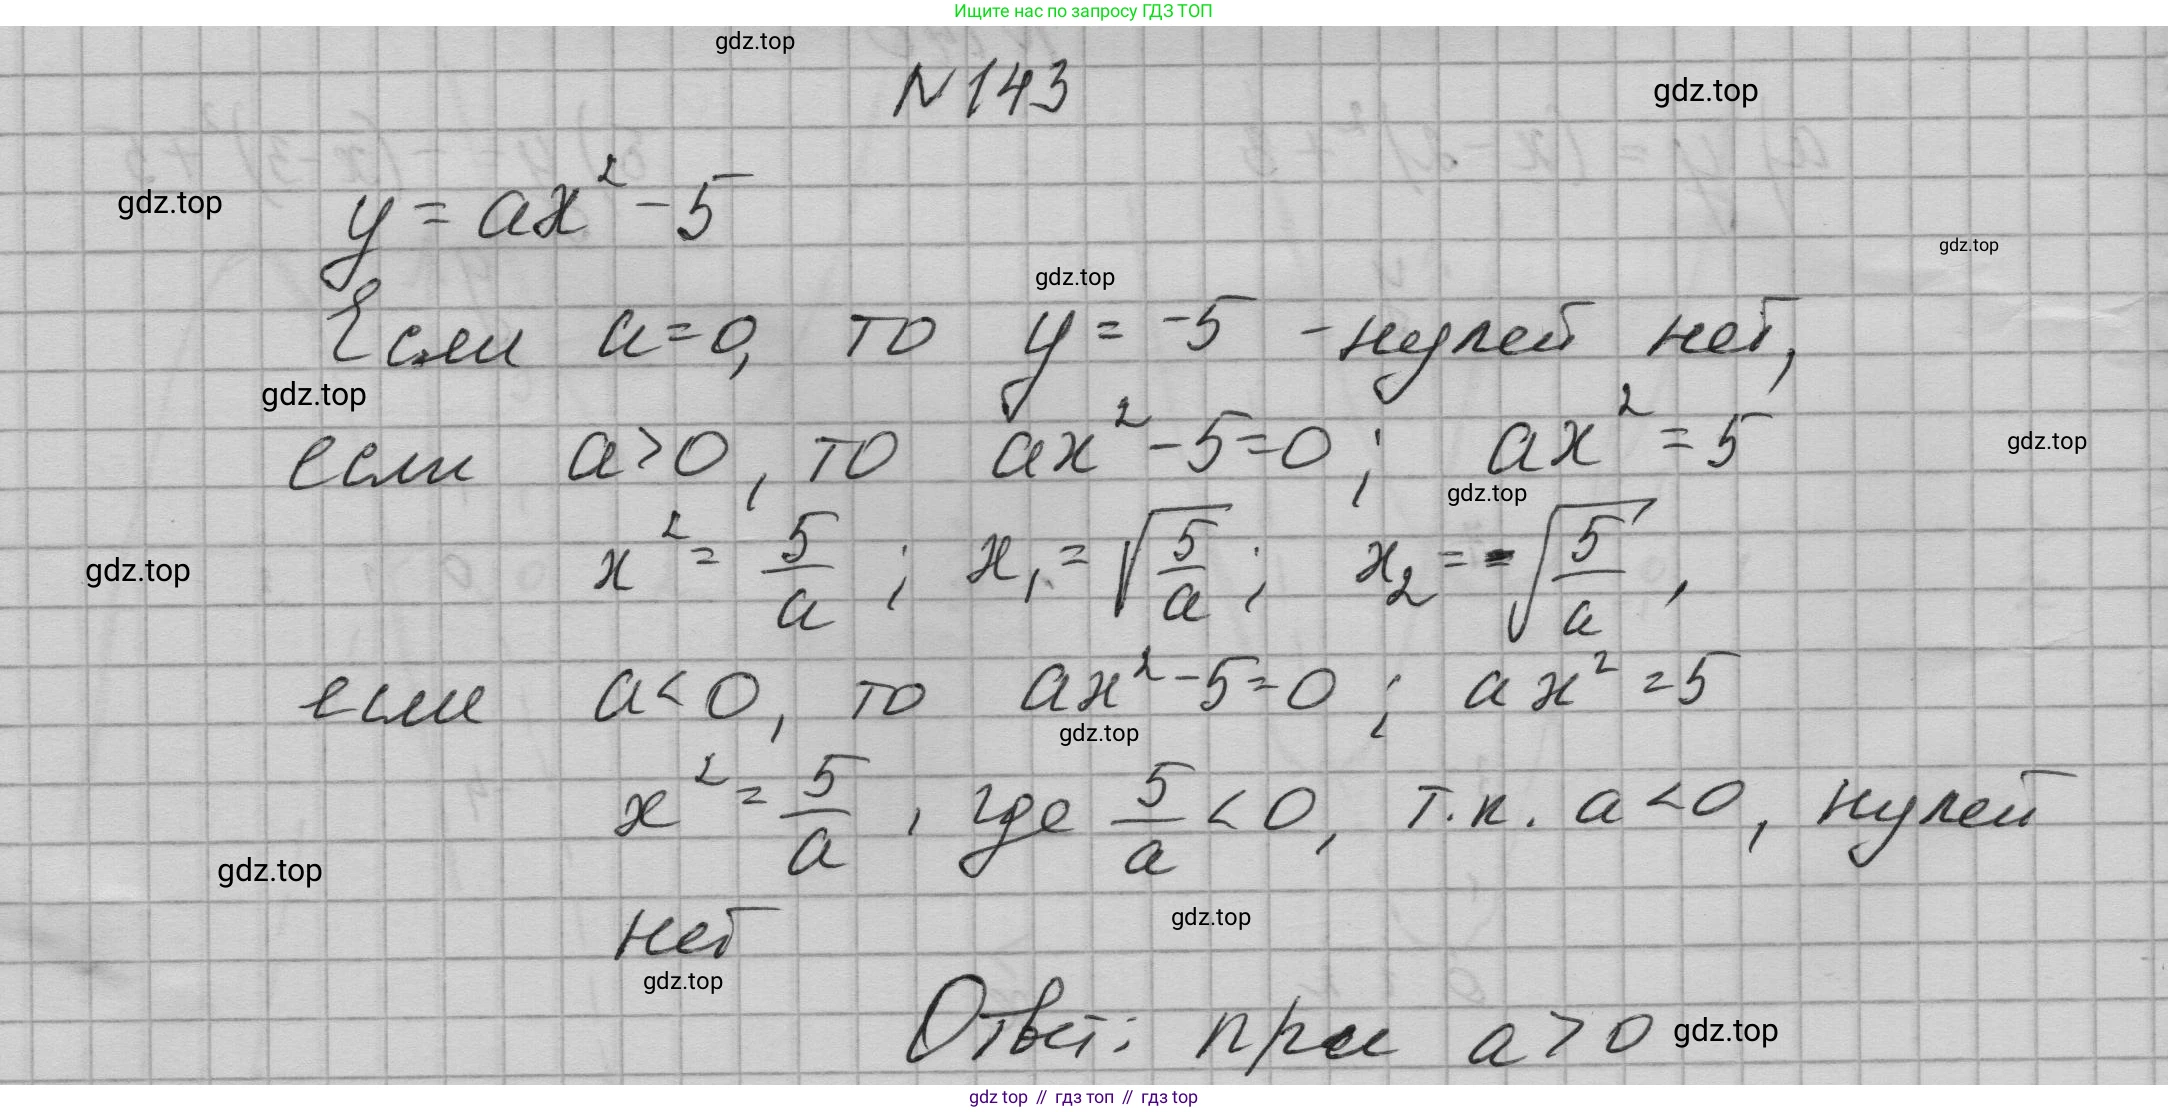 Ищите нас по запросу ГДЗ ТОП
gdz.top
N 143
gdz.top
gdz.top
y = ax² - 5
gdz.top
gdz.top
Если a=0, то y = -5 - нулей нет,
gdz.top
если a>0, то ax² - 5 = 0 ; ax² = 5
gdz.top
gdz.top
x² = 5/a ; x₁ = √(5/a) ; x₂ = -√(5/a) ,
gdz.top
если a<0, то ax² - 5 = 0 ; ax² = 5
gdz.top
x² = 5/a , где 5/a < 0, т.к. a < 0, нулей
gdz.top
нет
gdz.top
gdz.top
Ответ: при a > 0
gdz.top
gdz top // гдз топ // гдз top